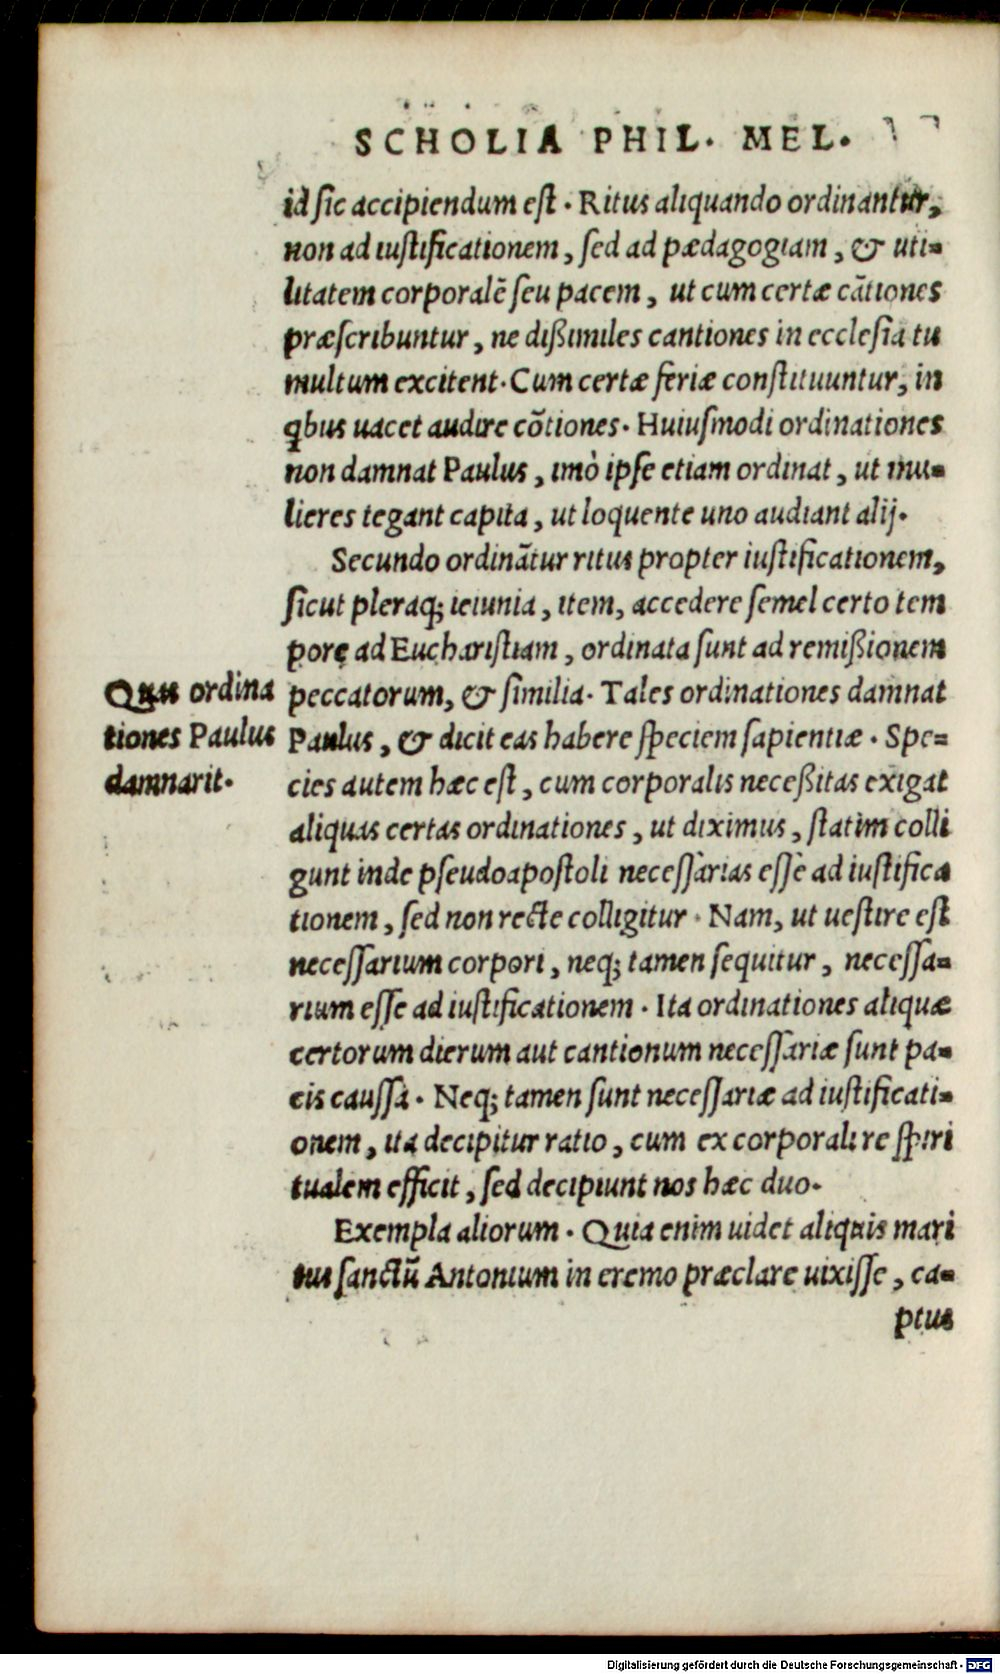 SCHOLIA PHIL. MEL.
id sic accipiendum est. Ritus aliquando ordinantur,
non ad iustificationem, sed ad pædagogiam, & uti-
litatem corporalē seu pacem, ut cum certæ cātiones
præscribuntur, ne dißimiles cantiones in ecclesia tu
multum excitent. Cum certæ feriæ constituuntur, in
qbus uacet audire cōtiones. Huiusmodi ordinationes
non damnat Paulus, imò ipse etiam ordinat, ut mu-
lieres tegant capita, ut loquente uno audiant alij.
Secundo ordinātur ritus propter iustificationem,
sicut pleraq; ieiunia, item, accedere semel certo tem
pore ad Eucharistiam, ordinata sunt ad remißionem
peccatorum, & similia. Tales ordinationes damnat
Paulus, & dicit eas habere speciem sapientiæ. Spe-
cies autem hæc est, cum corporalis neceßitas exigat
aliquas certas ordinationes, ut diximus, statim colli
gunt inde pseudoapostoli necessarias esse ad iustifica
tionem, sed non recte colligitur. Nam, ut uestire est
necessarium corpori, neq; tamen sequitur, necessa-
rium esse ad iustificationem. Ita ordinationes aliquæ
certorum dierum aut cantionum necessariæ sunt pa-
cis caussa. Neq; tamen sunt necessariæ ad iustificati-
onem, ita decipitur ratio, cum ex corporali re spiri
tualem efficit, sed decipiunt nos hæc duo.
Exempla aliorum. Quia enim uidet aliquis mari
tus sanctū Antonium in eremo præclare uixisse, ca-
ptus
Quas ordina
tiones Paulus
damnarit.
Digitalisierung gefördert durch die Deutsche Forschungsgemeinschaft - DFG